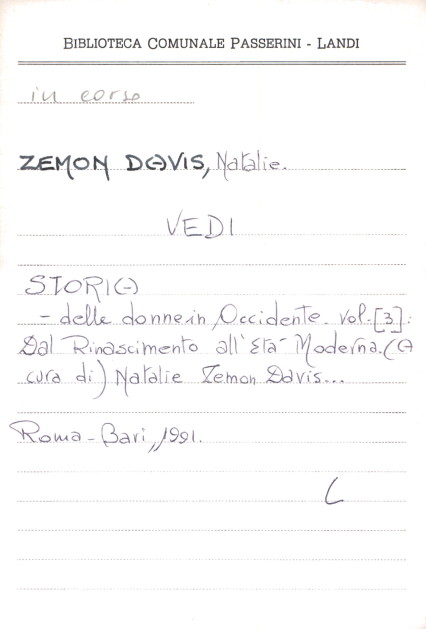 BIBLIOTECA COMUNALE PASSERINI - LANDI
in corso
ZEMON DAVIS, Natalie.
VEDI
STORIA
- delle donne in Occidente. vol. [3]:
Dal Rinascimento all'Età Moderna. (A
cura di) Natalie Zemon Davis...
Roma - Bari, 1991.